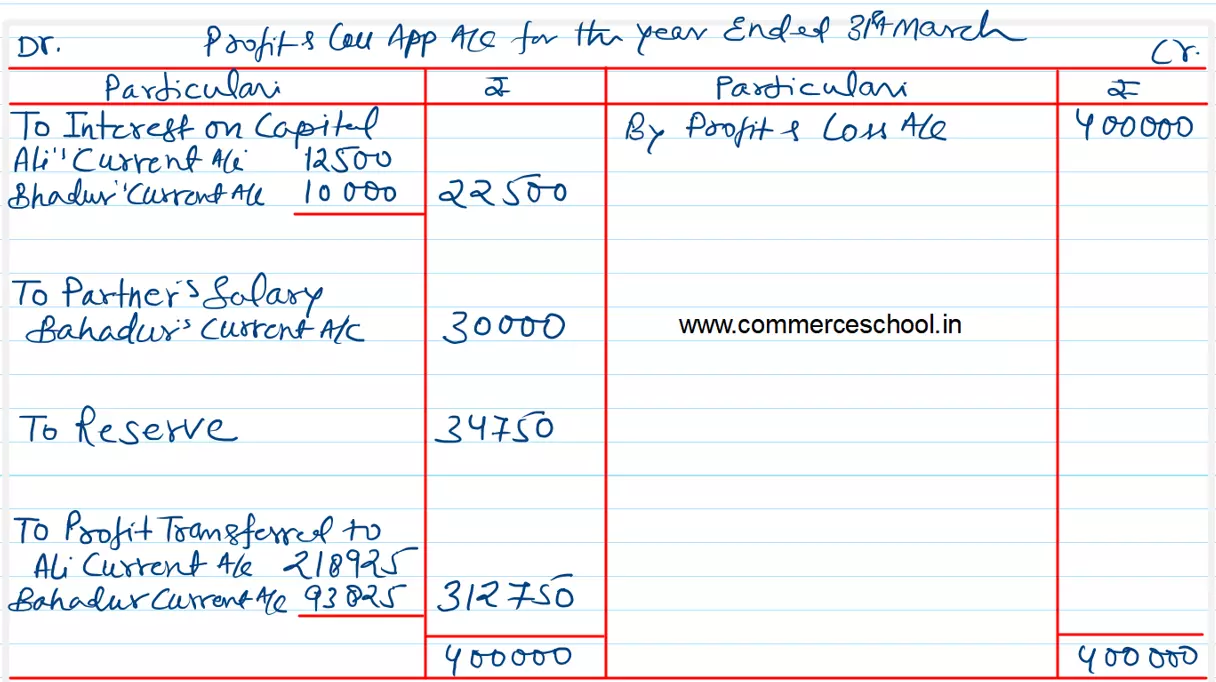 Dr. Profit & Loss App A/c for the year Ended 31st March Cr.
Particulars ₹ Particulars ₹
To Interest on Capital By Profit & Loss A/c 400000
Ali's Current A/c 12500
Bhadur's Current A/c 10000 22500
To Partner's Salary
Bahadur's Current A/c 30000 www.commerceschool.in
To Reserve 34750
To Profit Transferred to
Ali Current A/c 218925
Bahadur Current A/c 93825 312750
400000 400000